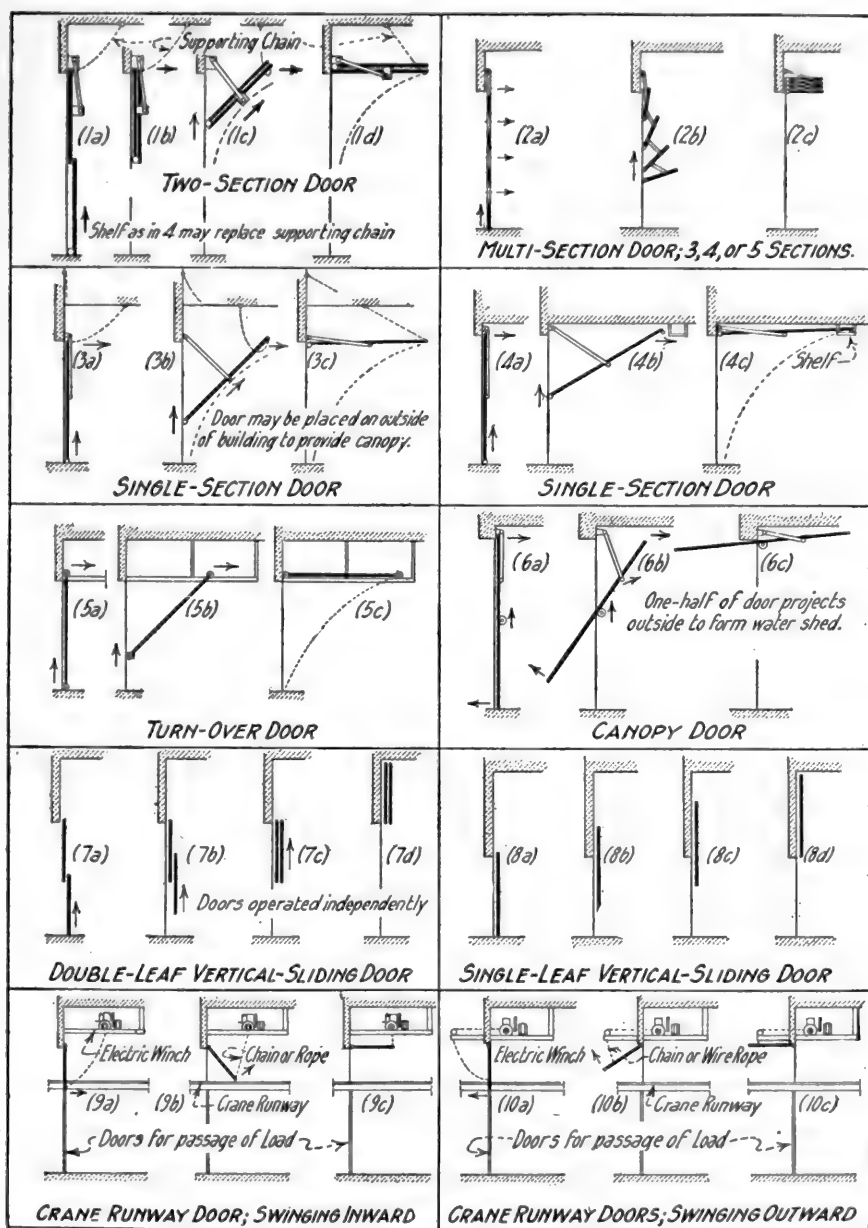 Supporting Chain
(1a)
(1b)
(1c)
(1d)
TWO-SECTION DOOR
Shelf as in 4 may replace supporting chain
(2a)
(2b)
(2c)
MULTI-SECTION DOOR; 3, 4, OR 5 SECTIONS.
(3a)
(3b)
(3c)
Door may be placed on outside
of building to provide canopy.
SINGLE-SECTION DOOR
(4a)
(4b)
(4c)
Shelf
SINGLE-SECTION DOOR
(5a)
(5b)
(5c)
TURN-OVER DOOR
(6a)
(6b)
(6c)
One-half of door projects
outside to form water shed.
CANOPY DOOR
(7a)
(7b)
(7c)
(7d)
Doors operated independently
DOUBLE-LEAF VERTICAL-SLIDING DOOR
(8a)
(8b)
(8c)
(8d)
SINGLE-LEAF VERTICAL-SLIDING DOOR
Electric Winch
Chain or Rope
(9a)
(9b)
Crane Runway
(9c)
Doors for passage of Load
CRANE RUNWAY DOOR; SWINGING INWARD
Electric Winch
Chain or Wire Rope
(10a)
(10b)
Crane Runway
(10c)
Doors for passage of Load
CRANE RUNWAY DOORS; SWINGING OUTWARD